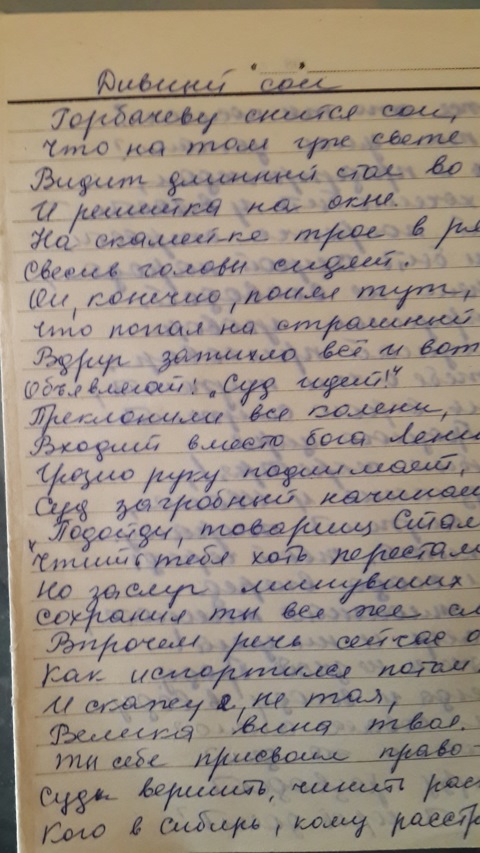 Дивный сон
Горбачеву снится сон,
Что на том уже свете
Видит длинный стол во
И решетка на окне.
На скамейке трое в ря
Свесив головы сидят.
Он, конечно, понял тут,
Что попал на страшный
Вдруг затихло всё и вот
Объявляют: „Суд идет!"
Преклонили все колени,
Входит вместо бога Лени
Грозно руку поднимает,
Суд загробный начинае
„Подойди, товарищ Стал
Чтить тебя хоть перестал
Но заслуг минувших
сохранил ты все же сл
Впрочем речь сейчас о
Как испортился потом
И скажу я, не тая,
Велика вина твоя.
Ты себе присвоил право-
Суды вершить, чинить рас
Кого в Сибирь, кому расстр